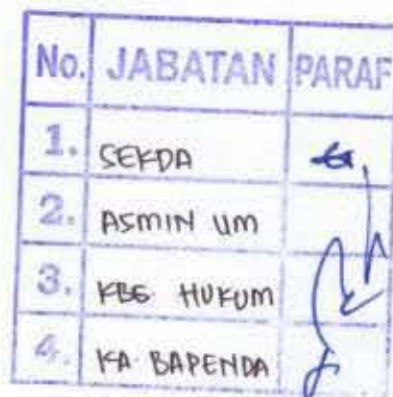 No. JABATAN PARAF
1. SEKDA
2. ASMIN UM
3. KBG HUKUM
4. KA. BAPENDA